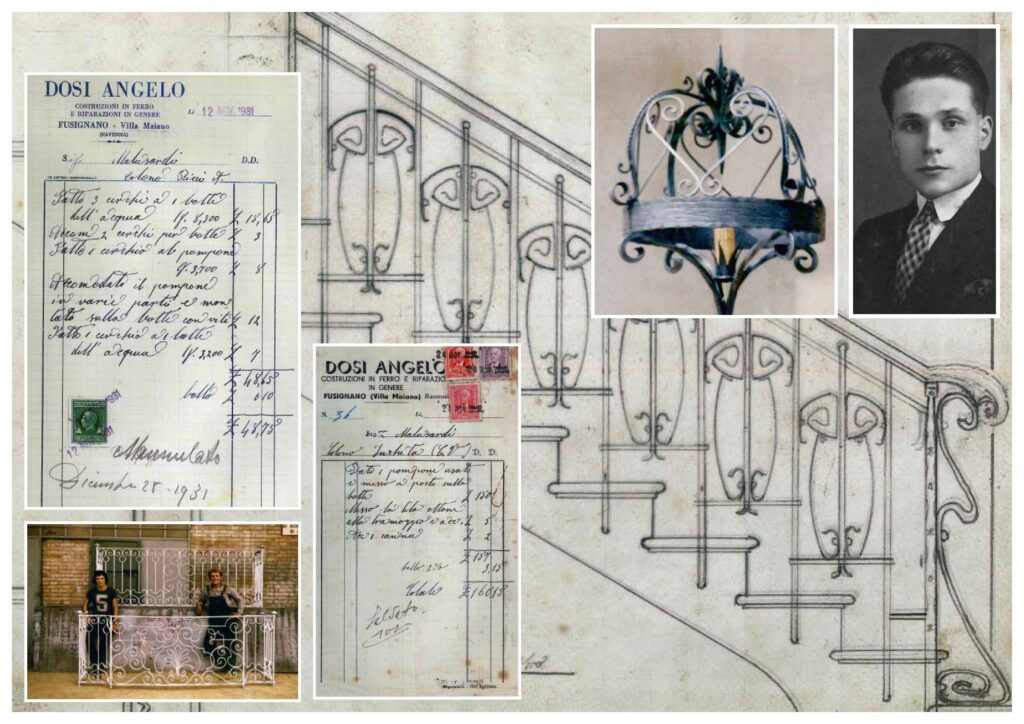 DOSI ANGELO
COSTRUZIONI IN FERRO
E RIPARAZIONI IN GENERE
FUSIGNANO - Villa Maiano
(RAVENNA)
li 12 NOV. 1931
S. Malusardi D.D.
colono Ricci A.
Fatto 3 cerchi a 1 botte
dell' acqua £ 18,65
Accom 2 cerchi per botte £ 3
Fatto 1 cerchio al pompone
3,700 £ 8
Accomodato il pompone
in varie parti e mon
tato sulla botte con viti £ 12
Fatto 1 cerchio a 1 botte
dell' acqua 3,200 £ 7
£ 48,65
bollo £ 010
£ 48,75
12 NOV 1931
Dicembre 28 - 1931
DOSI ANGELO
COSTRUZIONI IN FERRO E RIPARAZIO
IN GENERE
FUSIGNANO (Villa Maiano)
N. 36 LA
Malusardi
Colono D. D.
Dato 1 pompone usato
e messo a posto sulla
botte £ 150
Messo la tela ottone
alla tramoggia £ 5
1 canna £ 2
£ 157
bollo 2% 3,15
Totale £ 160,15
Saldato
5